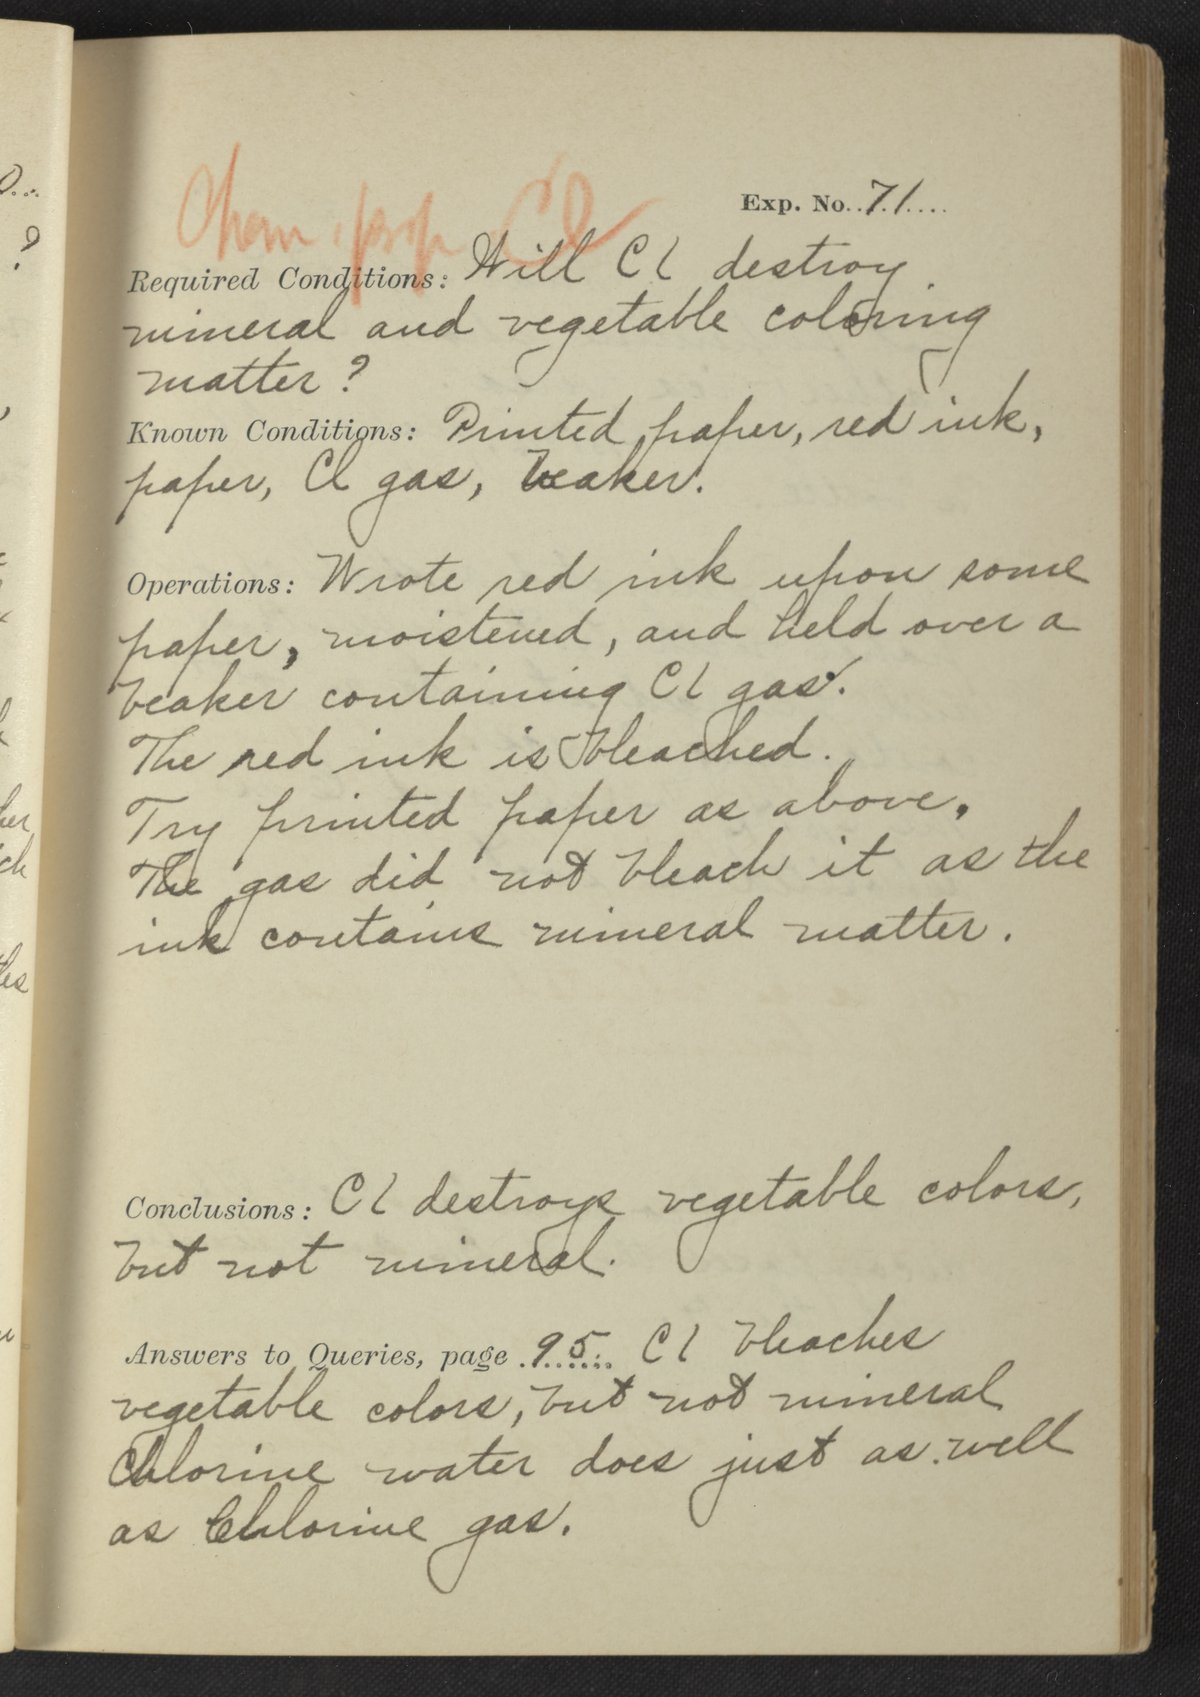 Chem. prop Cl
Exp. No. 71
Required Conditions: Will Cl destroy
mineral and vegetable coloring
matter?
Known Conditions: Printed paper, red ink,
paper, Cl gas, beaker.
Operations: Wrote red ink upon some
paper, moistened, and held over a
beaker containing Cl gas.
The red ink is bleached.
Try printed paper as above.
The gas did not bleach it as the
ink contains mineral matter.
Conclusions: Cl destroys vegetable colors,
but not mineral.
Answers to Queries, page 95. Cl bleaches
vegetable colors, but not mineral
Chlorine water does just as well
as Chlorine gas.